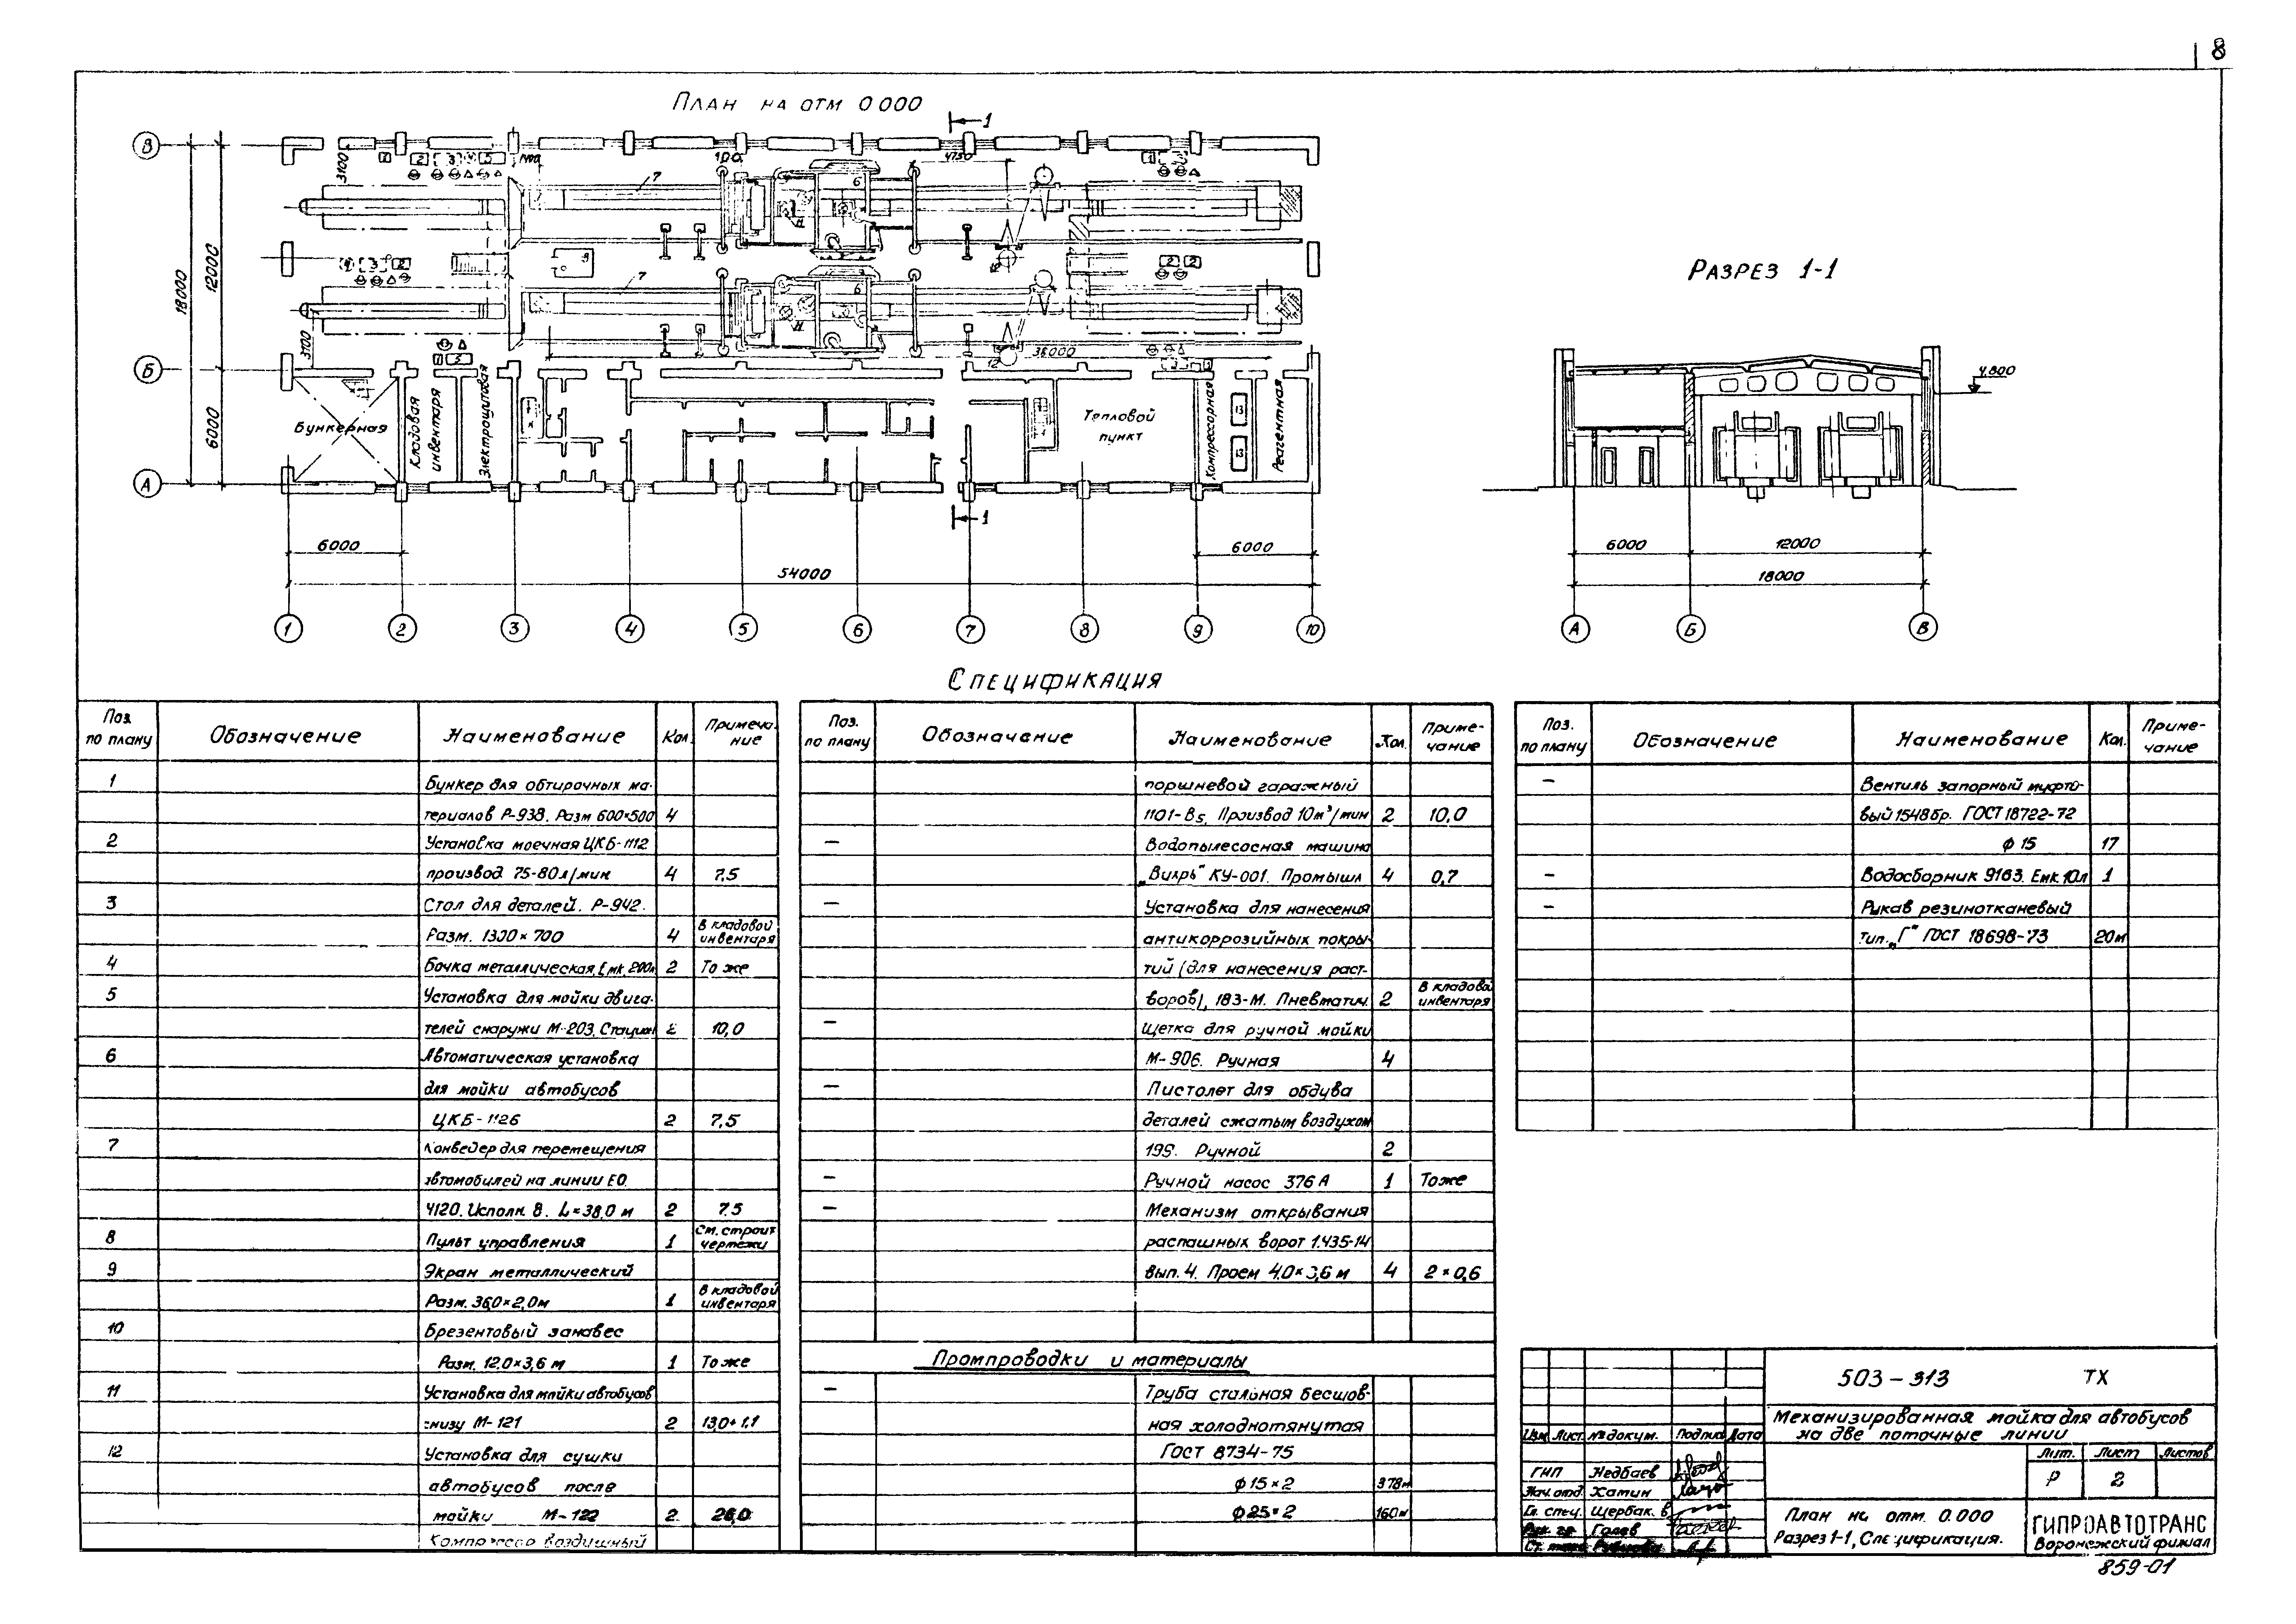 8
План на отм 0.000
1
В
Б
А
3100
3100
4750
7
7
6
6
36000
12
18000
12000
6000
Бункерная
Кладовая инвентаря
Электрощитовая
Тепловой пункт
Компрессорная
Реагентная
1
6000
6000
54000
1 2 3 4 5 6 7 8 9 10
Разрез 1-1
4.800
6000
12000
18000
А Б В
Спецификация
Поз. по плану Обозначение Наименование Кол. Примечание
1 Бункер для обтирочных ма-
териалов Р-938. Разм 600×500 4
2 Установка моечная ЦКБ-1112
производ 75-80л/мин 4 7.5
3 Стол для деталей. Р-942.
Разм. 1300×700 4 В кладовой инвентаря
4 Бочка металлическая, Емк. 200л 2 То же
5 Установка для мойки двига-
телей снаружи М-203. Стацион 2 10,0
6 Автоматическая установка
для мойки автобусов
ЦКБ-1126 2 7,5
7 Конвейер для перемещения
автомобилей на линии ЕО.
4120. Исполн. 8. L=38,0 м 2 7.5
8 Пульт управления 1 См. строит чертежи
9 Экран металлический
Разм. 36,0×2,0м 1 В кладовой инвентаря
10 Брезентовый занавес
Разм. 12.0×3,6 м 1 То же
11 Установка для мойки автобусов
снизу М-121 2 13,0+1,1
12 Установка для сушки
автобусов после
мойки М-122 2 26,0
Компрессор воздушный
Поз. по плану Обозначение Наименование Кол. Примечание
поршневой гаражный
1101-В5. Производ 10м³/мин 2 10,0
— Водопылесосная машина
„Вихрь" КУ-001. Промышл 4 0,7
— Установка для нанесения
антикоррозийных покры-
тий (для нанесения раст-
воров), 183-М. Пневматич. 2 В кладовой инвентаря
— Щетка для ручной мойки
М-906. Ручная 4
— Пистолет для обдува
деталей сжатым воздухом
199. Ручной 2
— Ручной насос 376А 1 То же
— Механизм открывания
распашных ворот 1.435-14
вып. 4. Проем 4.0×3,6 м 4 2×0,6
Промпроводки и материалы
— Труба стальная бесшов-
ная холоднотянутая
ГОСТ 8734-75
ф 15×2 378м
ф 25×2 160м
Поз. по плану Обозначение Наименование Кол. Примечание
— Вентиль запорный муфто-
вый 1548бр. ГОСТ 18722-72
ф 15 17
— Водосборник 9163. Емк 10л 1
— Рукав резинотканевый
тип „Г" ГОСТ 18698-73 20м
503-313 ТХ
Механизированная мойка для автобусов
на две поточные линии
Изм Лист № докум. Подпись Дата
Лит. Лист Листов
Р 2
ГИП Недбаев
Нач. отд Хатин
Гл. спец. Щербак. В
Рук. гр. Галев
План на отм. 0.000
Разрез 1-1, Спецификация.
ГИПРОАВТОТРАНС
Воронежский филиал
859-01